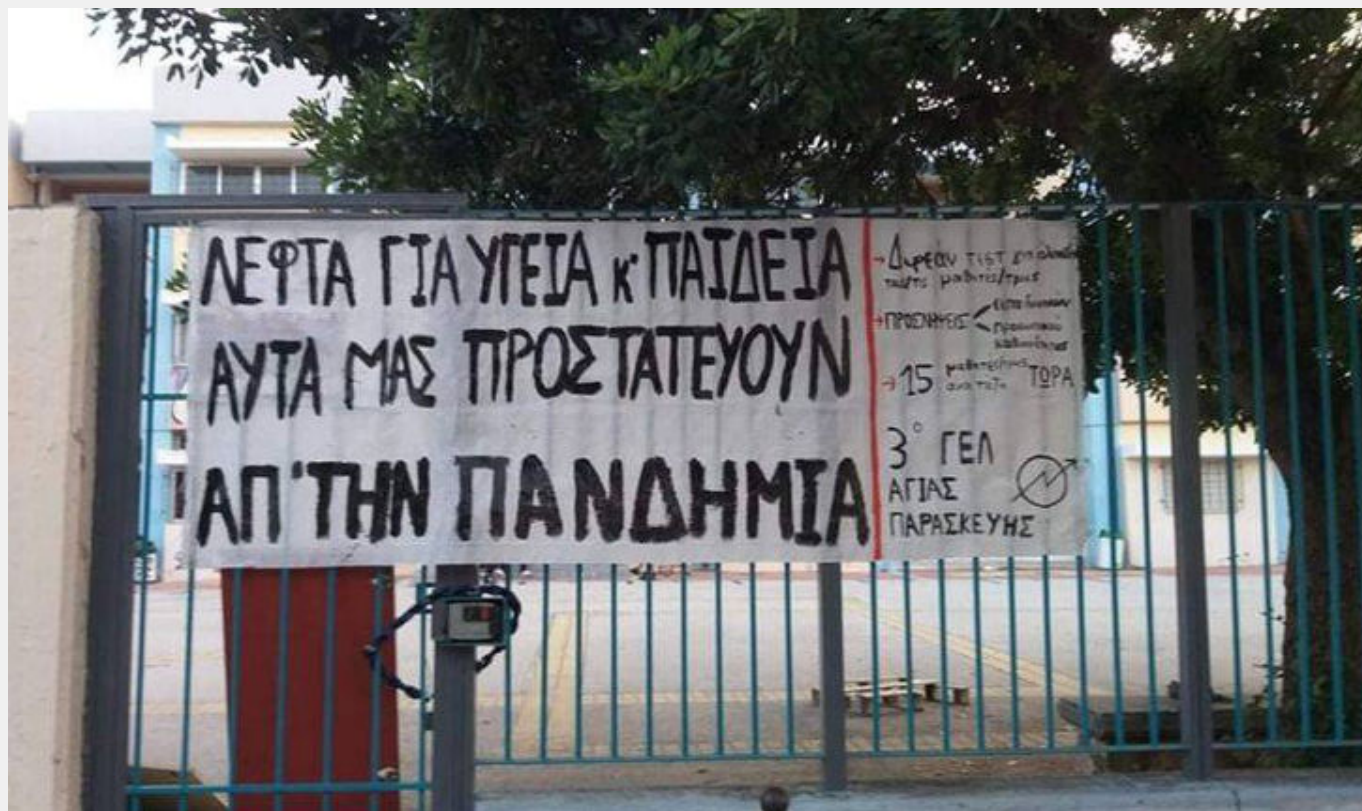 ΛΕΦΤΑ ΓΙΑ ΥΓΕΙΑ Κ' ΠΑΙΔΕΙΑ
ΑΥΤΑ ΜΑΣ ΠΡΟΣΤΑΤΕΥΟΥΝ
ΑΠ' ΤΗΝ ΠΑΝΔΗΜΙΑ
→ Δωρεάν ΤΕΣΤ
μαθητές/τριες
→ ΠΡΟΣΛΗΨΕΙΣ
→ 15 μαθητές/τριες
ανά τάξη ΤΩΡΑ
3° ΓΕΛ
ΑΓΙΑΣ
ΠΑΡΑΣΚΕΥΗΣ